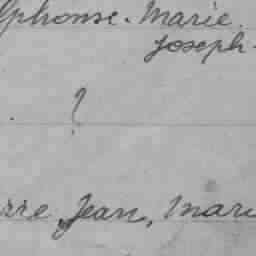 lphonse. Marie.
Joseph-
?
rre Jean, Mari